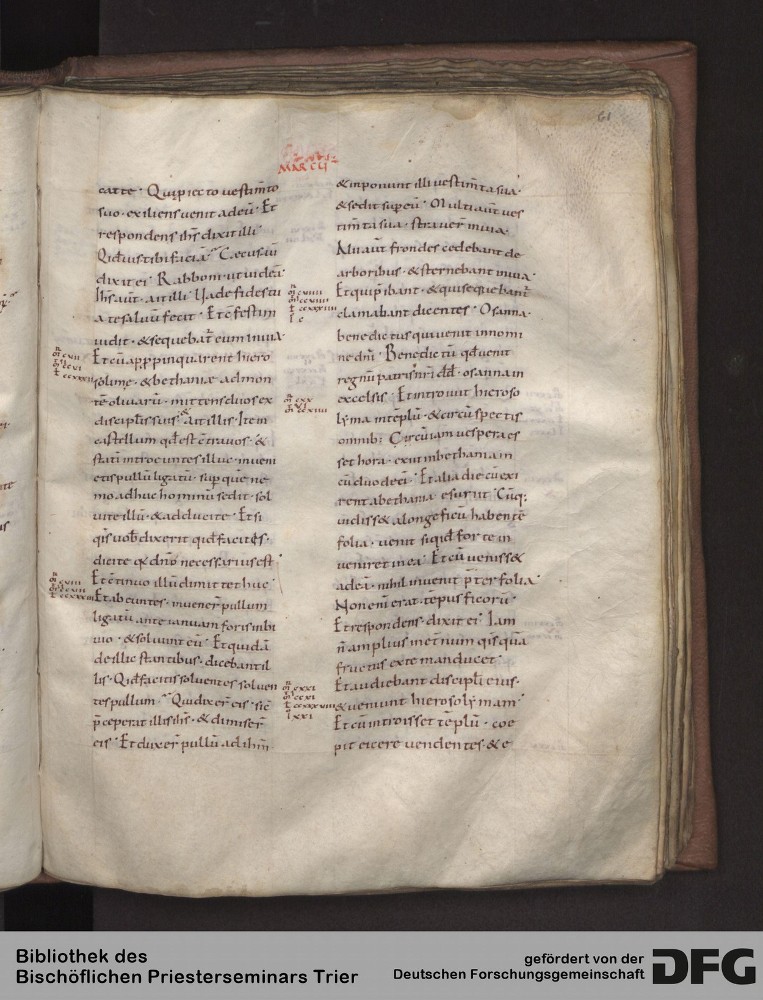 61
MARCU
cat te · Qui proiecto vestimto
suo · exiliens venit ad eū · Et
respondens ihs dixit illi
Qid vis tibi faciā · Cecus aū
dixit ei · Rabboni ut videā
Ihs aūt · ait illi · Uade fides tua
a te saluū fecit · Et cfestim
uidit · & sequebat eum in uia ·
Et cū appropinquarent hiero
solime · & bethaniæ ad mon
tē oliuarū · mittens duos ex
discipl̄is suis · & ait illis · Ite in
castellum qd̄ est ctra uos · &
stati introeuntes illuc · inueni
etis pullū ligatū · sup que ne
mo adhuc hominū sedit · sol
uite illū · & adducite · Et si
qis uob dixerit qid facitis ·
dicite qa dno necessarius est ·
Et ctinuo illū dimittet huc ·
Et abeuntes · inuener pullum
ligatū ante ianuam foris in bi
uio · & soluunt eū · Et quidā
de illic stantibus · dicebant il
lis · Qid facitis soluentes soluen
tes pullum · Qui dixer eis · sic
pceperat illis ihs · & dimiser
eis · Et duxer pullū ad ihm
& inponunt illi vestimta sua ·
& sedit sup eū · Multi aūt ves
timta sua · strauer in uia ·
Alii aūt frondes cedebant de
arboribus · & sternebant in uia ·
Et qui pibant · & qui sequebant
clamabant dicentes · Osanna ·
benedictus qui uenit in nomi
ne dni · Benedictū qd uenit
regnū patris nri dd · osanna in
excelsis · Et introiuit hieroso
lyma in teplū · & circū spectis
omnib: Cū iam uespera es
set hora · exiit in bethaniam
cū duodeci · Et alia die cū exi
rent a bethania esuriit · Cūq:
uidiss& a longe ficū habente
folia · uenit si qid forte in
ueniret in ea · Et cū uenisse&
ad eā · nihil inuenit pter folia ·
Non eni erat tepus ficorū ·
Et respondens · dixit ei · Iam
n amplius in et̄num qis quā
fructus ex te manducet ·
Et audiebant discipl̄i eius ·
& ueniunt hierosolymam ·
Et cū introisset teplū · coe
pit eicere uendentes & e
Bibliothek des
Bischöflichen Priesterseminars Trier
gefördert von der
Deutschen Forschungsgemeinschaft
DFG